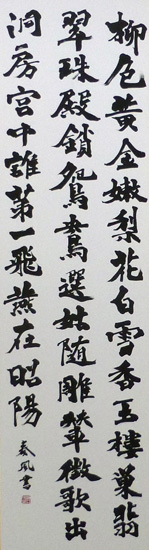 柳色黄金嫩梨花白雪香玉樓巢翡
翠珠殿鎖鴛鴦選妓随雕輦徵歌出
洞房宮中誰第一飛燕在昭陽
風書